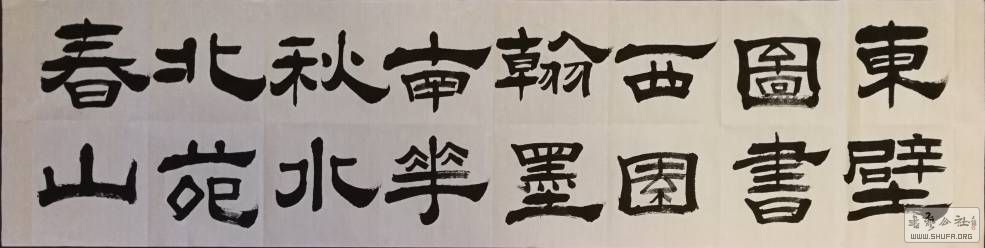 東壁
圖書
西園
翰墨
南華
秋水
北苑
春山
書藝公社
WWW.SHUFA.ORG